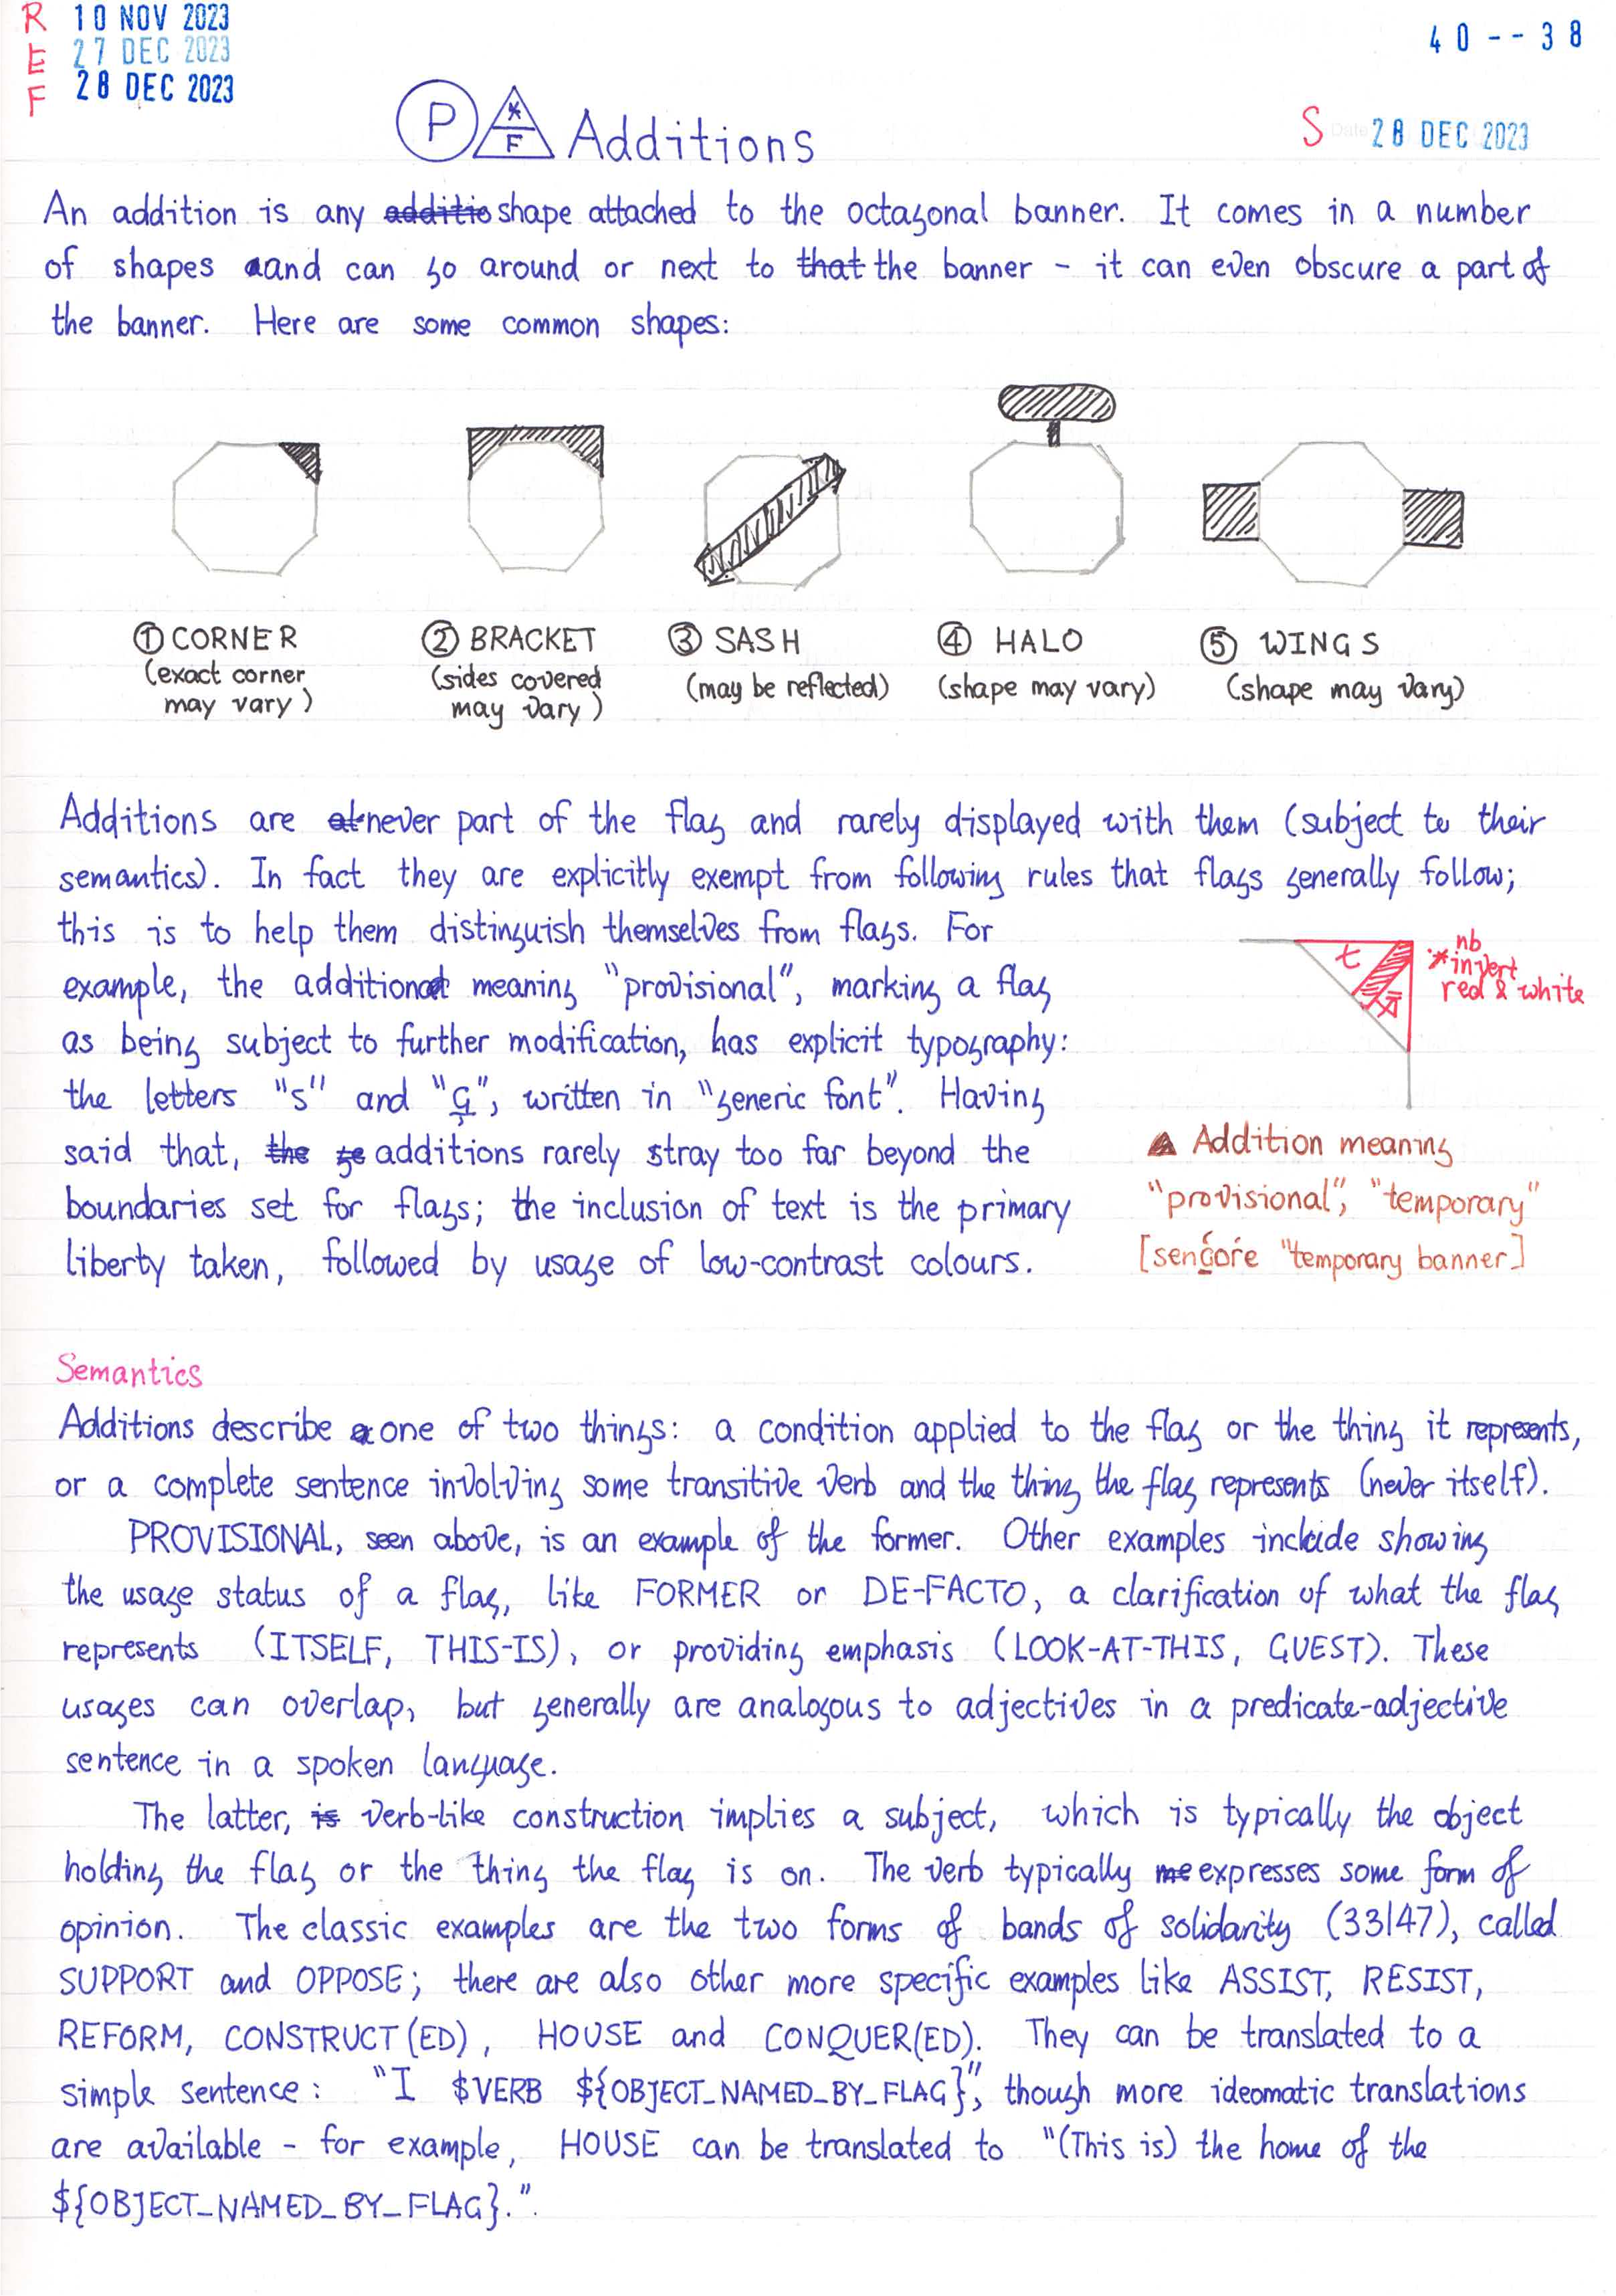 R 10 NOV 2023
E 27 DEC 2023
F 28 DEC 2023
40--38
P * F Additions
S Date 28 DEC 2023
An addition is any additio shape attached to the octagonal banner. It comes in a number
of shapes and can go around or next to that the banner - it can even obscure a part of
the banner. Here are some common shapes:
① CORNER
(exact corner
may vary)
② BRACKET
(sides covered
may vary)
③ SASH
(may be reflected)
④ HALO
(shape may vary)
⑤ WINGS
(shape may vary)
Additions are never part of the flag and rarely displayed with them (subject to their
semantics). In fact they are explicitly exempt from following rules that flags generally follow;
this is to help them distinguish themselves from flags. For
example, the addition meaning "provisional", marking a flag
as being subject to further modification, has explicit typography:
the letters "s" and "ɢ̧", written in "generic font". Having
said that, the ge additions rarely stray too far beyond the
boundaries set for flags; the inclusion of text is the primary
liberty taken, followed by usage of low-contrast colours.
nb
* invert
red & white
▲ Addition meaning
"provisional", "temporary"
[senćoŕe "temporary banner]
Semantics
Additions describe one of two things: a condition applied to the flag or the thing it represents,
or a complete sentence involving some transitive verb and the thing the flag represents (never itself).
PROVISIONAL, seen above, is an example of the former. Other examples include showing
the usage status of a flag, like FORMER or DE-FACTO, a clarification of what the flag
represents (ITSELF, THIS-IS), or providing emphasis (LOOK-AT-THIS, GUEST). These
usages can overlap, but generally are analogous to adjectives in a predicate-adjective
sentence in a spoken language.
The latter, is verb-like construction implies a subject, which is typically the object
holding the flag or the thing the flag is on. The verb typically me expresses some form of
opinion. The classic examples are the two forms of bands of solidarity (33|47), called
SUPPORT and OPPOSE; there are also other more specific examples like ASSIST, RESIST,
REFORM, CONSTRUCT(ED), HOUSE and CONQUER(ED). They can be translated to a
simple sentence: "I $VERB ${OBJECT_NAMED_BY_FLAG}", though more ideomatic translations
are available - for example, HOUSE can be translated to "(This is) the home of the
${OBJECT_NAMED_BY_FLAG}.".